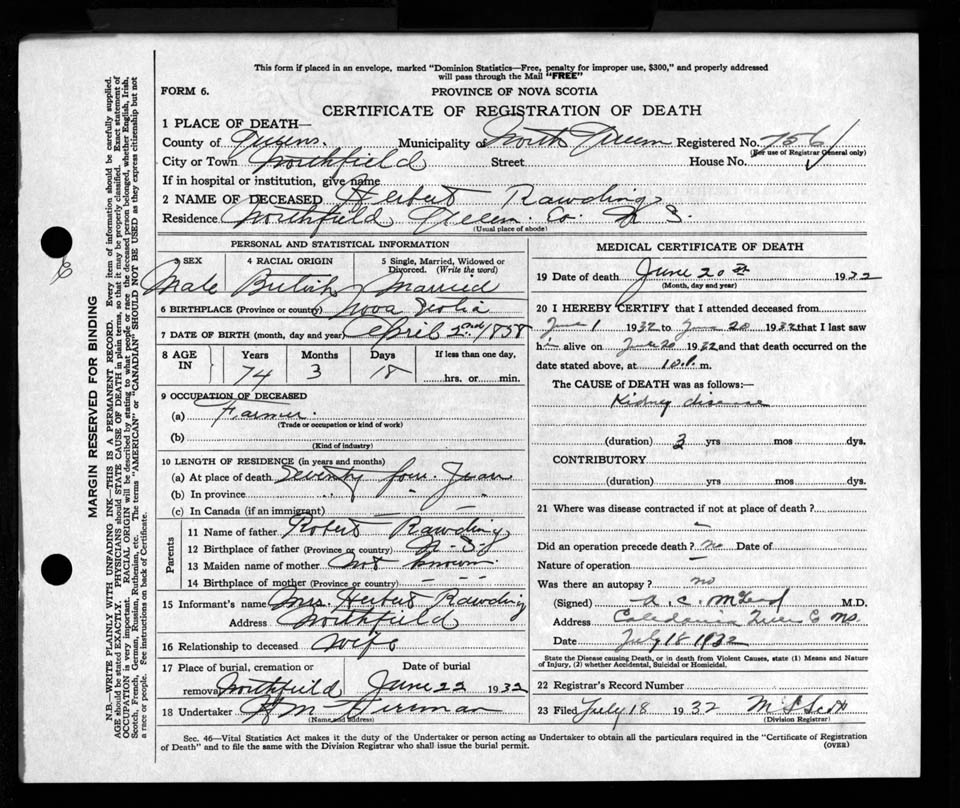 This form if placed in an envelope, marked "Dominion Statistics—Free, penalty for improper use, $300," and properly addressed
will pass through the Mail "FREE"
FORM 6.
PROVINCE OF NOVA SCOTIA
CERTIFICATE OF REGISTRATION OF DEATH
1 PLACE OF DEATH—
County of Queens. Municipality of North Queens Registered No. 756
(For use of Registrar General only)
City or Town Northfield Street House No.
If in hospital or institution, give name
2 NAME OF DECEASED Herbert Rawding
Residence Northfield Queens Co. N. S.
(Usual place of abode)
PERSONAL AND STATISTICAL INFORMATION
3 SEX 4 RACIAL ORIGIN 5 Single, Married, Widowed or
Divorced. (Write the word)
Male British Married
6 BIRTHPLACE (Province or country) Nova Scotia
7 DATE OF BIRTH (month, day and year) April 2nd, 1858
8 AGE IN Years Months Days If less than one day,
74 3 18 hrs. or min.
9 OCCUPATION OF DECEASED
(a) Farmer.
(Trade or occupation or kind of work)
(b)
(Kind of industry)
10 LENGTH OF RESIDENCE (in years and months)
(a) At place of death Seventy four Years
(b) In province " " "
(c) In Canada (if an immigrant) — —
Parents
11 Name of father Robert Rawding
12 Birthplace of father (Province or country) N. S.
13 Maiden name of mother not known
14 Birthplace of mother (Province or country) — — —
15 Informant's name Mrs. Herbert Rawding
Address Northfield
16 Relationship to deceased Wife
17 Place of burial, cremation or Date of burial
removal Northfield June 22 1932
18 Undertaker H M
(Name and address)
MEDICAL CERTIFICATE OF DEATH
19 Date of death June 20th 1932
(Month, day and year)
20 I HEREBY CERTIFY that I attended deceased from
June 1 1932 to June 20 1932 that I last saw
him alive on June 20 1932 and that death occurred on the
date stated above, at 10 P. m.
The CAUSE OF DEATH was as follows:—
Kidney disease
(duration) 3 yrs mos. dys.
CONTRIBUTORY
(duration) yrs mos. dys.
21 Where was disease contracted if not at place of death?
—
Did an operation precede death? no Date of
Nature of operation —
Was there an autopsy? no
(Signed) A. C. M.D.
Address Caledonia Queens Co NS.
Date July 18 1932
State the Disease causing Death, or in death from Violent Causes, state (1) Means and Nature
of Injury, (2) whether Accidental, Suicidal or Homicidal.
22 Registrar's Record Number
23 Filed July 18 1932
(Division Registrar)
Sec. 46—Vital Statistics Act makes it the duty of the Undertaker or person acting as Undertaker to obtain all the particulars required in the "Certificate of Registration
of Death" and to file the same with the Division Registrar who shall issue the burial permit.
(OVER)
MARGIN RESERVED FOR BINDING
N.B.—WRITE PLAINLY WITH UNFADING INK—THIS IS A PERMANENT RECORD. Every item of information should be carefully supplied.
AGE should be stated EXACTLY. PHYSICIANS should STATE CAUSE OF DEATH in plain terms, so that it may be properly classified. Exact statement of
OCCUPATION is very important. RACIAL ORIGIN will be described by stating to what people or race the deceased person belonged, whether English, Irish,
Scotch, French, German, Russian, Ruthenian, etc. The terms "AMERICAN" or "CANADIAN" SHOULD NOT BE USED as they express citizenship but not
a race or people. Fee instructions on back of Certificate.